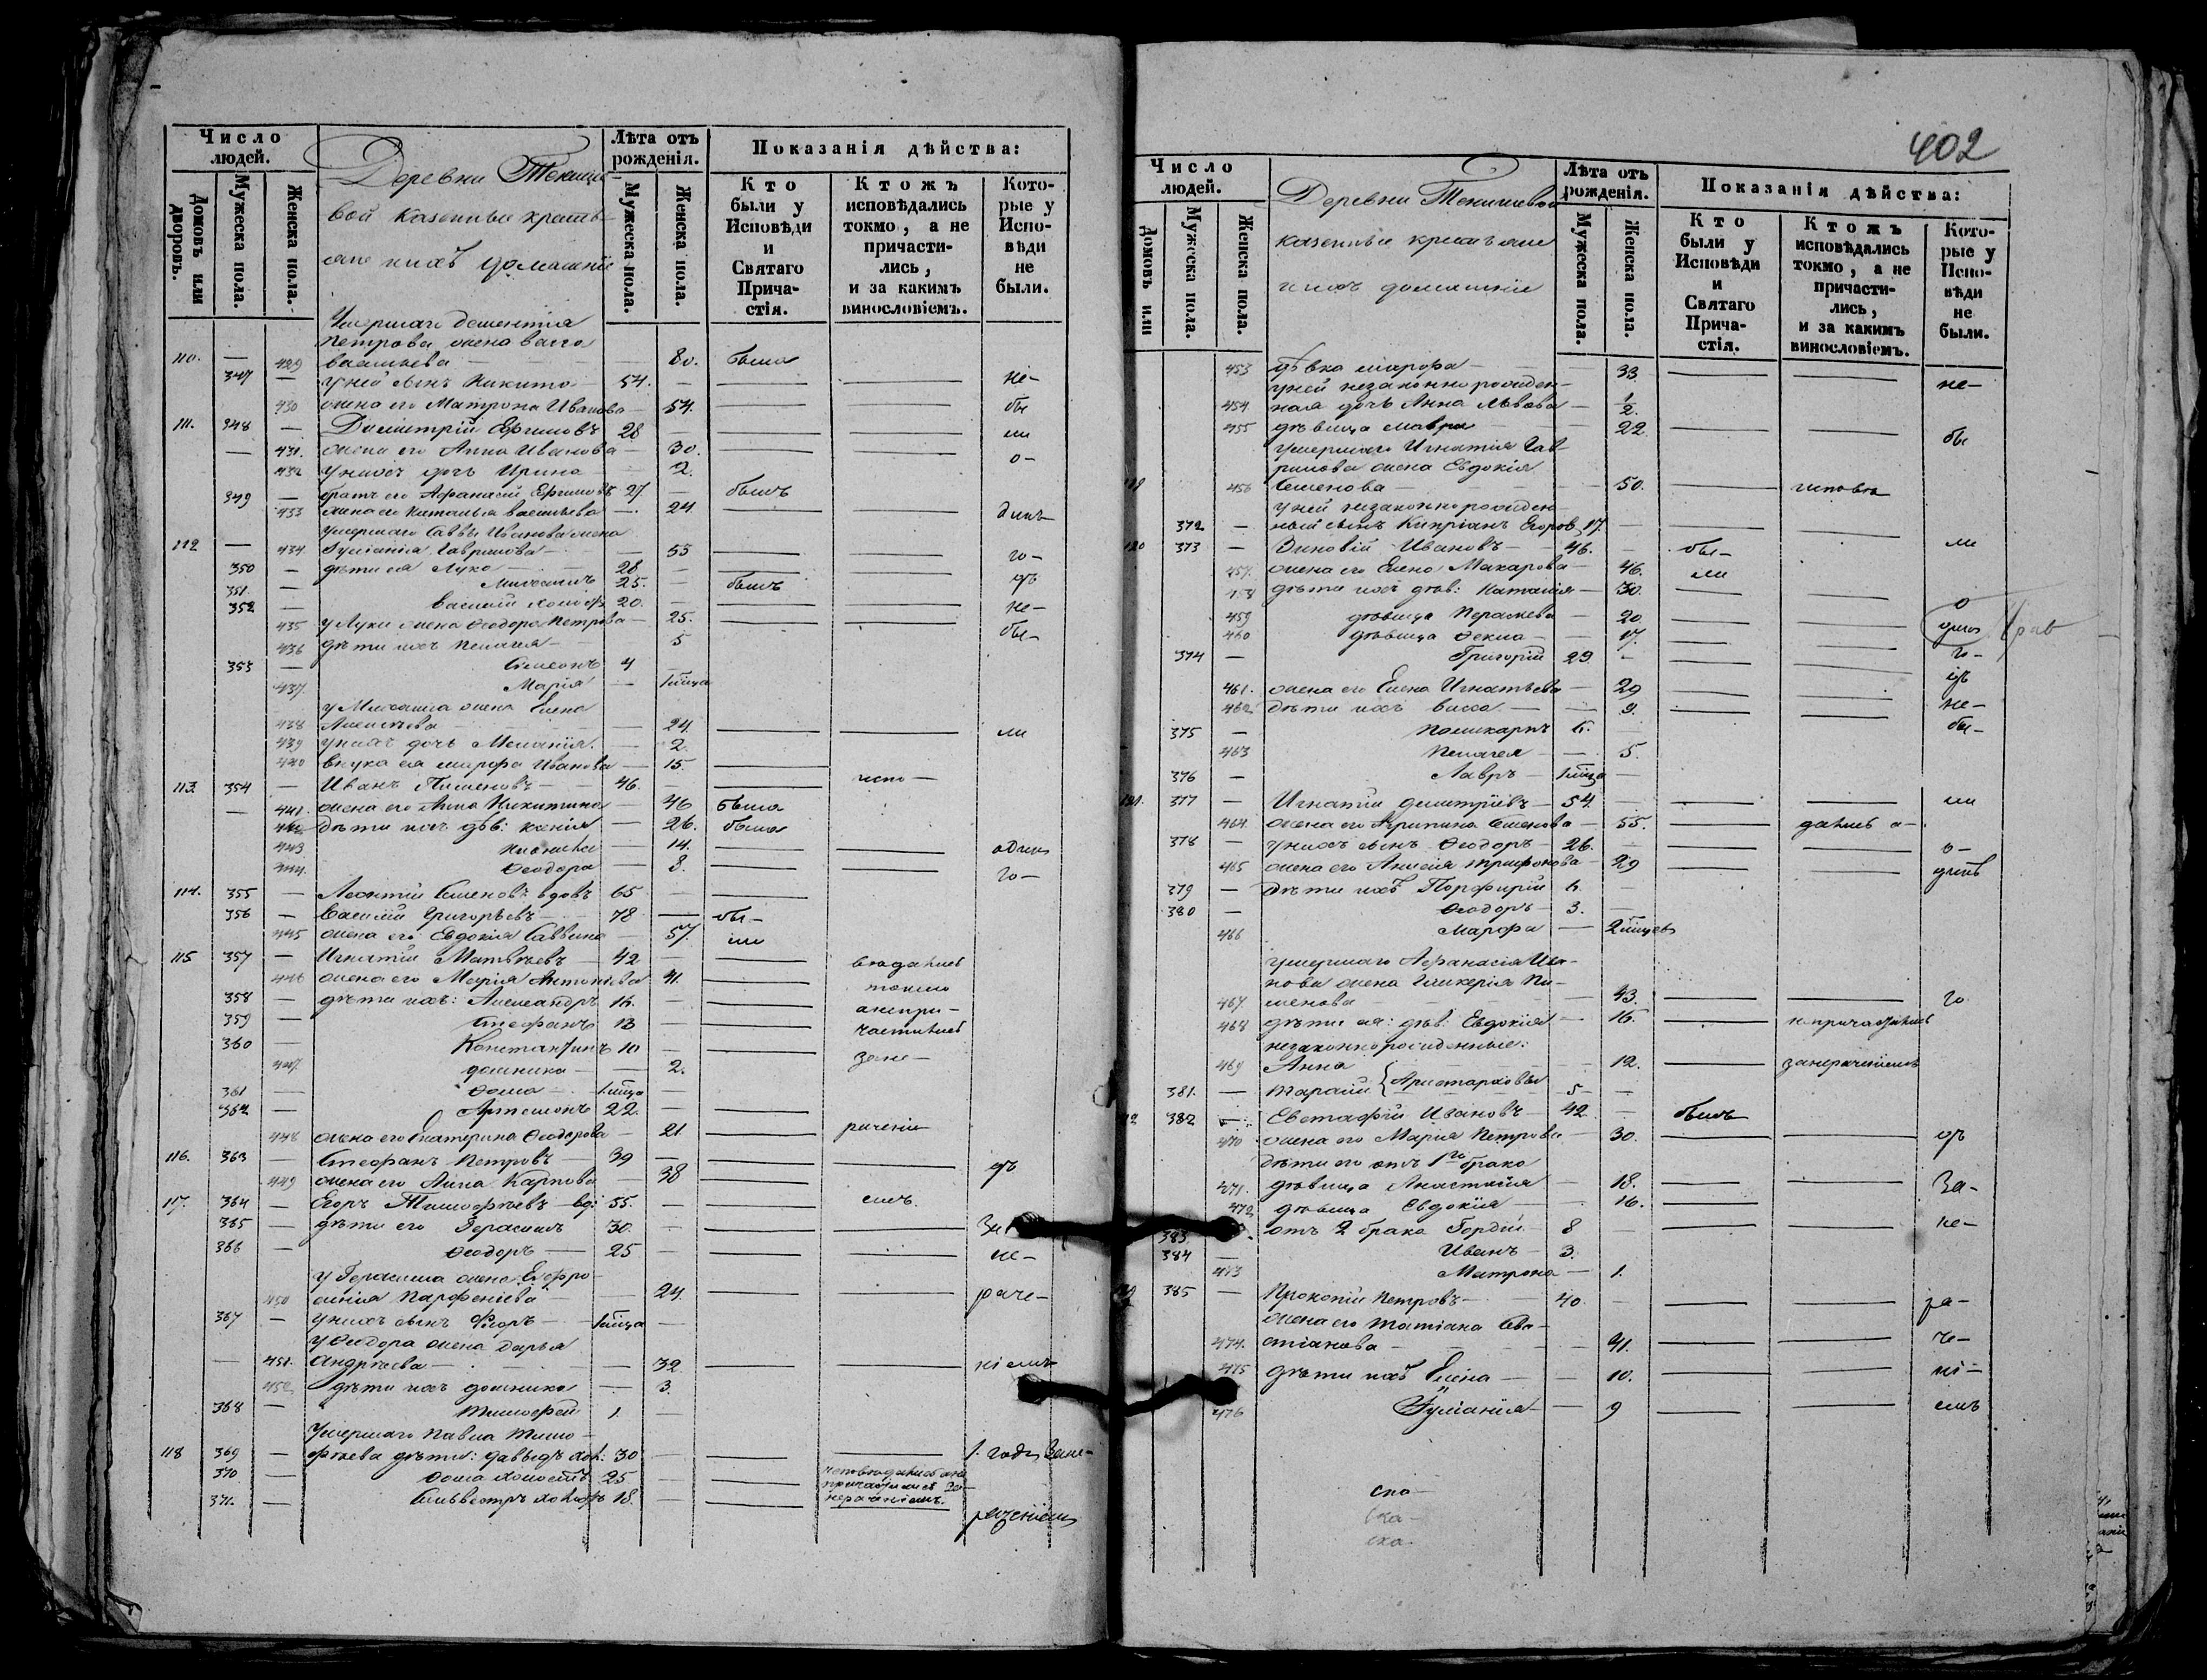 Число людей.
Домовъ или дворовъ.
Мужеска пола.
Женска пола.
Деревни Текише-
вой казенные крестья-
не и ихъ домашніе
Лѣта отъ рожденія.
Мужеска пола.
Женска пола.
Показанія дѣйства:
Кто были у Исповѣди и Святаго Причастія.
Ктожъ исповѣдались токмо, а не причастились, и за какимъ винословіемъ.
Которые у Исповѣди не были.
Умершаго Дементія
Петрова жена Васса
110. — 429 Васильева — 80. была
347 — у ней сынъ Никита 54. — не-
430 жена его Матрона Иванова — 54. бы
111. 348 — Димитрій Ефимовъ 28 — ли
— 431. жена его Анна Иванова — 30. о-
432 у нихъ дочь Ирина — 2.
349 — братъ его Афанасій Ефимовъ 27. — былъ
433 жена его Наталья Васильева — 24 динъ
Умершаго Саввы Иванова жена
112 — 434. Іуліанія Гаврилова — 55 го-
350 — дѣти ея Лука 28 — дъ
351. — Михаилъ 25. — былъ
352 — Василій холост 20. — не-
435 у Луки жена Ѳеодора Петрова — 25. бы-
436 дѣти ихъ Пелагия — 5
353 — Симеонъ 4 —
437. Марія — 1 мѣсца
у Михаила жена Елена
438 Алексѣева — 24. ли
439 у нихъ дочь Меланія. — 2.
440 внука ея Марфа Иванова — 15.
113. 354 — Иванъ Пименовъ 46. — испо-
— 441. жена его Анна Никитина — 46 была
442 дѣти ихъ дѣв: Ксенія — 26. была
443 — 14. одинъ
444. Ѳеодора — 8. го-
114. 355 — Леонтій Семеновъ вдовъ 65 —
356 — Василій Григорьевъ 78 — бы-
445 жена его Евдокія Саввина — 57. ли
115 357 — Игнатій Матвѣевъ 42 — вѣдались
446 жена его Марія Антоніева 41. токмо
358 — дѣти ихъ: Александръ 16. — а не при-
359 — Стефанъ 13 — частились
360 — Константинъ 10 — за не-
447. Домника — 2.
361 — Ѳома 1 мѣсца —
362 — Артемонъ 22. —
448 жена его Екатерина Ѳеодорова — 21. раченіе
116. 363 — Стефанъ Петровъ 39 —
449 жена его Анна Карпова — 38 дъ
117. 364 — Егоръ Тимофѣевъ вд: 55. — емъ.
365 — дѣти его Герасимъ 30. — За
366 — Ѳеодоръ 25 — не-
у Герасима жена Евфро-
450 синія Парфеніева — 24. раче-
367 — у нихъ сынъ Флоръ 1 мѣсца —
у Ѳеодора жена Дарья
— 451. Андрѣева — 32 ніемъ
452. дѣти ихъ Домника — 3.
368 — Тимофей 1. —
Умершаго Павла Тимо-
118 369 — фѣева дѣти: Давыдъ хол: 30 — 1. годъ Зане-
370 — Ѳома холостъ 25 — исповѣдались а не
371. — Сильвестръ холостъ 18. — причастились за
нерачніемъ. раченіемъ
402
Число людей.
Домовъ или
Мужеска пола.
Женска пола.
Деревни Текишевой
казенные крестьяне
и ихъ домашніе
Лѣта отъ рожденія.
Мужеска пола.
Женска пола.
Показанія дѣйства:
Кто были у Исповѣди и Святаго Причастія.
Ктожъ исповѣдались токмо, а не причастились, и за какимъ винословіемъ.
Которые у Исповѣди не были.
453 дѣвка Марфа — 33. не-
у ней незаконнорожден-
454. ная дочь Анна Львова — 1/2.
455 дѣвица Мавра — 22 бы
умершаго Игнатія Гав-
рилова жена Евдокія
456 Семенова — 50. исповѣ
у ней незаконнорожден-
372 — ный сынъ Кипріанъ Егоров 17. ли
120 373 — Зиновій Ивановъ 46. — бы-
457. жена его Елена Макарова — 46. ли
458 дѣти ихъ дѣв: Наталія — 30. о
459 дѣвица Параскева — 20. динъ
460 дѣвица Ѳекла — 17.
374 — Григорій 29. — го-
461. жена его Елена Игнатьева — 29 дъ
462 дѣти ихъ Васса — 9. не-
375 — Поликарпъ 6. — бы-
463 Пелагея — 5.
376 — Лавръ 1 мѣсца —
121. 377 — Игнатій Димитріевъ 54. — ли
464. жена его Агрипина Семенова — 55. дались а-
378 — у нихъ сынъ Ѳеодоръ 26. — о-
465 жена его Анисія Трифонова — 29 динъ
379 — дѣти ихъ Порфирій 6. —
380 — Ѳеодоръ 3. —
466 Марфа — 2 мѣсцев
умершаго Афанасія Ива-
нова жена Гликерія Пи-
467. менова — 43. го
468 дѣти ея: дѣв: Евдокія — 16. непричастились
незаконнорожденные:
469 Анна — 12. занерачніемъ
381. — Тарасій Аристарховы 5 —
382 — Евстафій Ивановъ 42 — былъ
470 жена его Марія Петрова — 30. дъ
дѣти его отъ 1го брака
471. дѣвица Анастасія — 18. За-
472 дѣвица Евдокія — 16.
383. отъ 2 брака Гордій 8 не-
384 — Иванъ 3.
473 Матрона — 1.
385 — Прокопій Петровъ 40. — ра-
жена его Татіана Сева-
474. стіанова — 41. че-
475 дѣти ихъ Елена — 10. ні-
476 Іуліанія — 9 емъ
ска-
ска-
ска.